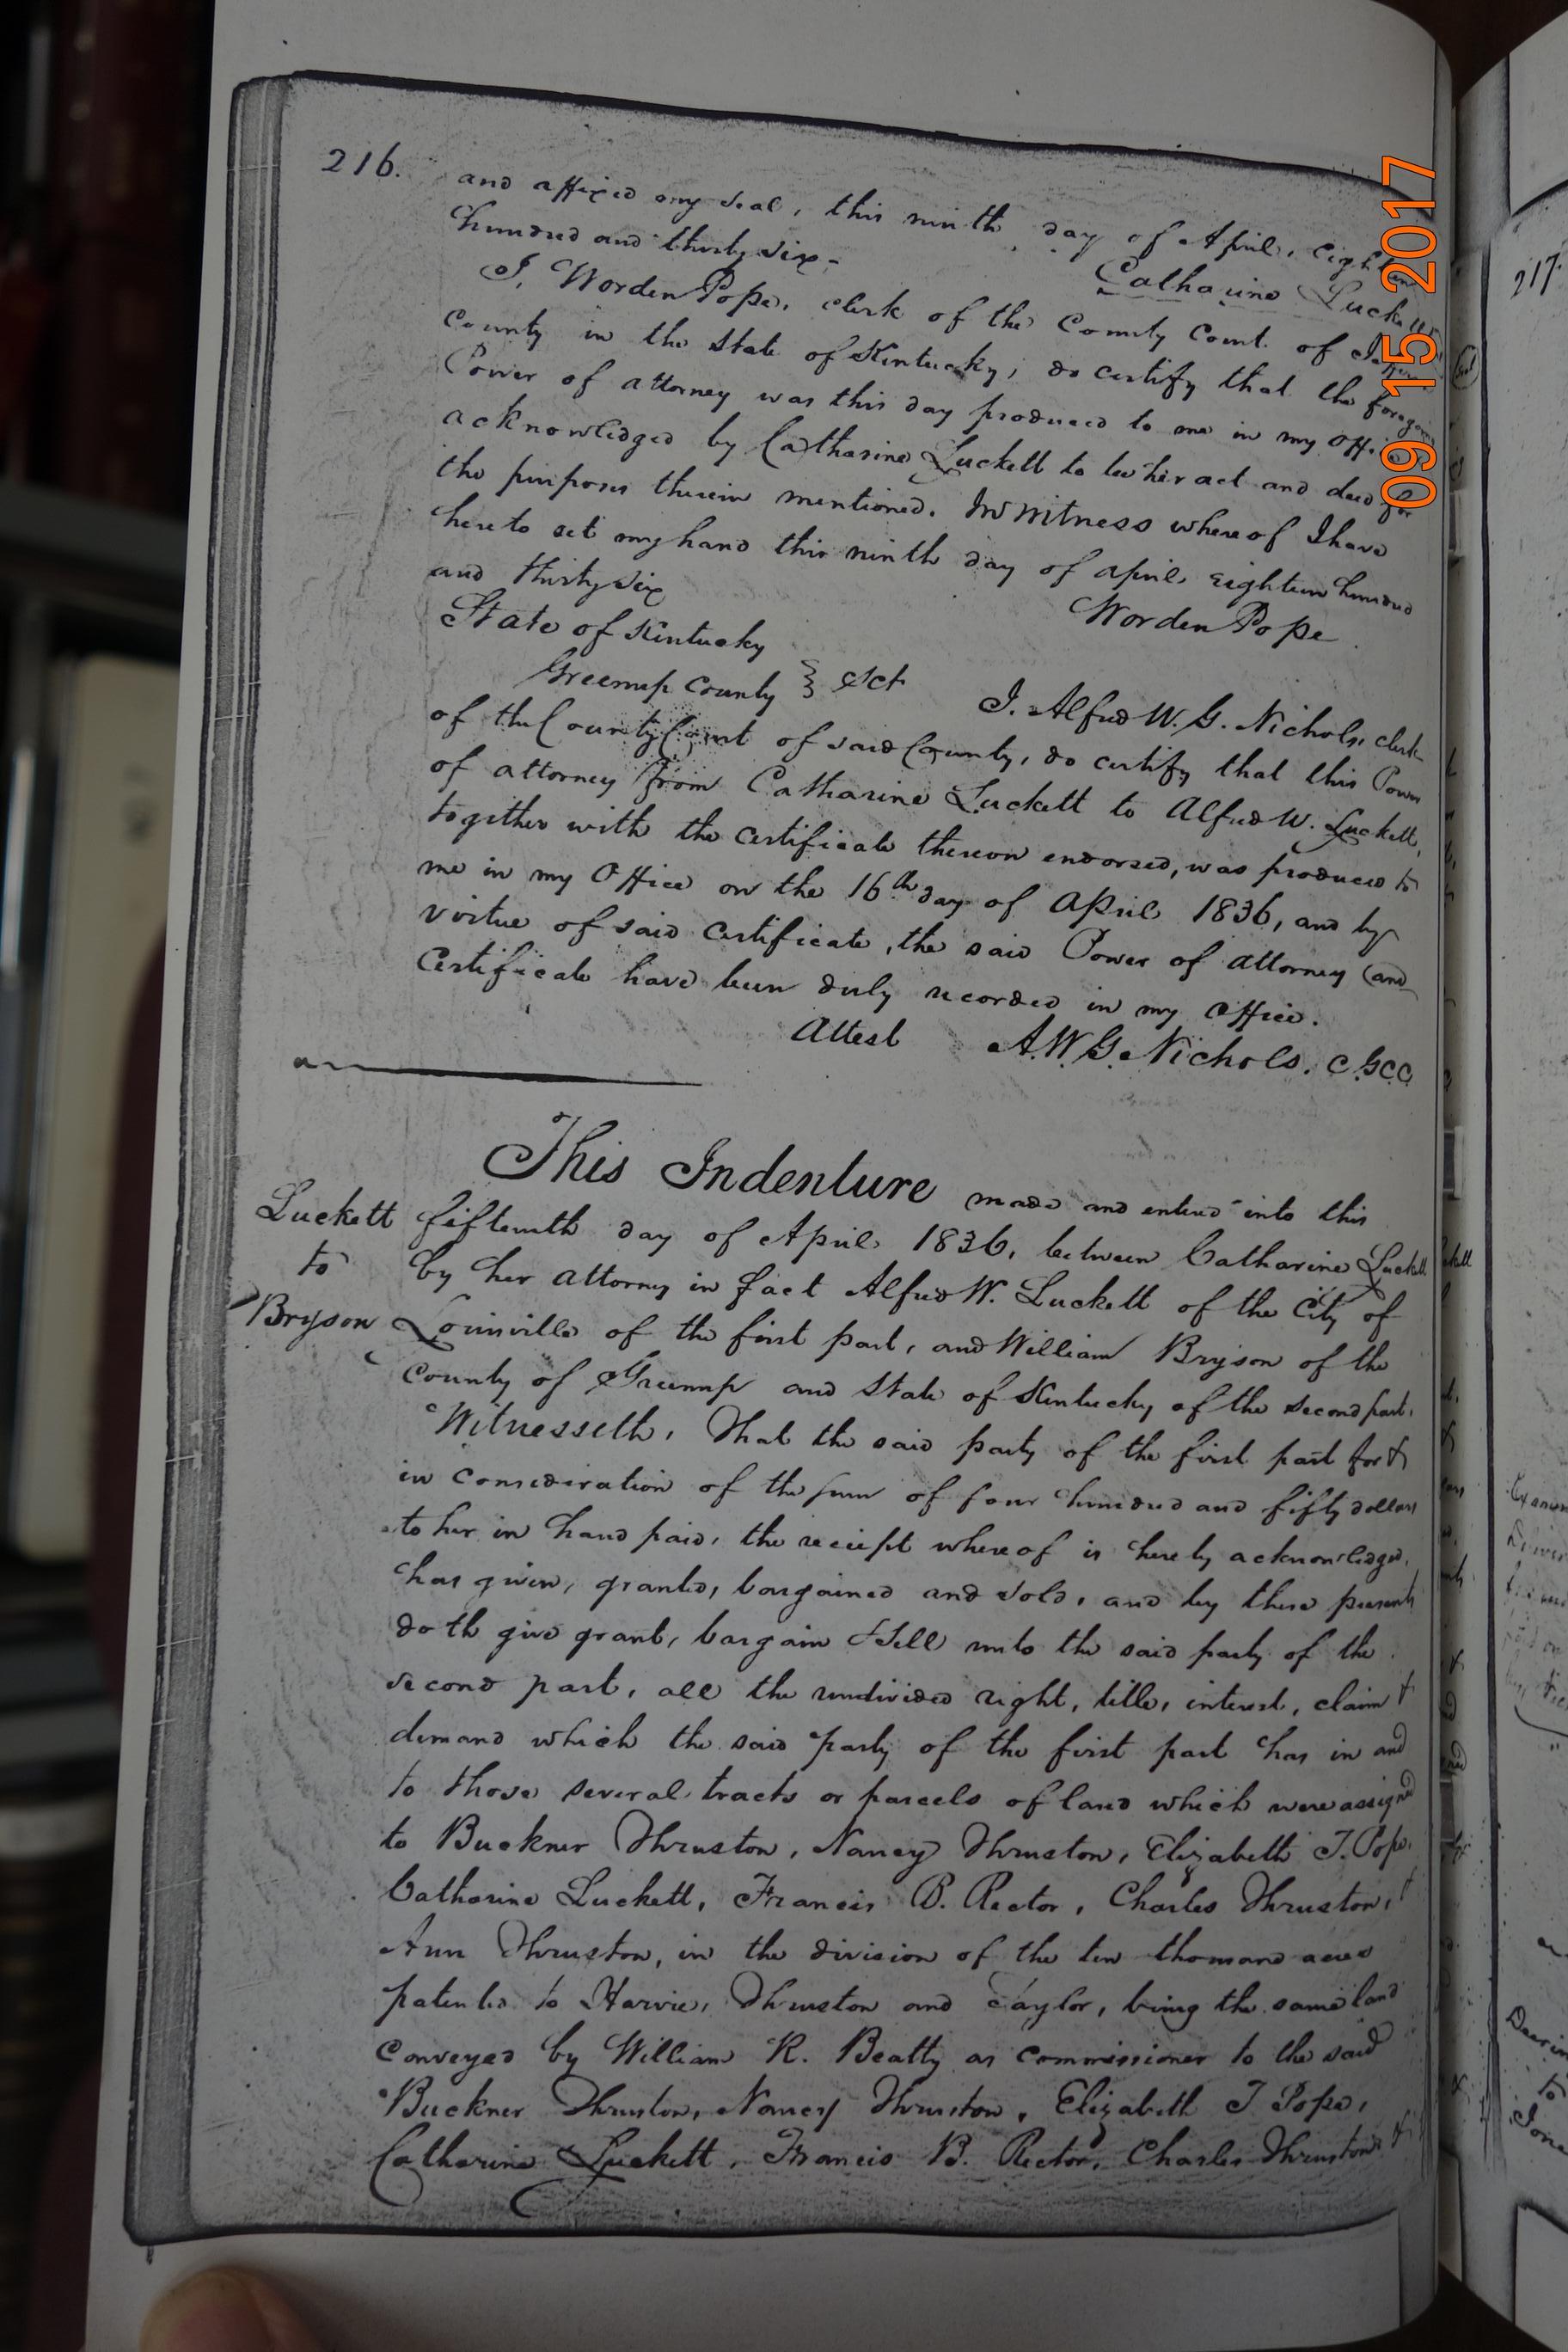 216.
and affixed my seal, this ninth day of April, eighteen
hundred and thirty six.
Catharine Luckett
I, Worden Pope, clerk of the County Court of
County in the State of Kentucky, do certify that the foregoing
Power of attorney was this day produced to me in my office
acknowledged by Catharine Luckett to be her act and deed for
the purposes therein mentioned. In Witness whereof I have
hereto set my hand this ninth day of april eighteen hundred
and thirty six
Worden Pope.
State of Kentucky
Greenup County } Sct
I. Alfred W. G. Nichols, clerk
of the County Court of said County, do certify that this Power
of attorney from Catharine Luckett to Alfred W. Luckett,
together with the certificate thereon endorsed, was produced to
me in my Office on the 16th day of April 1836, and by
virtue of said certificate, the said Power of attorney and
Certificate have been duly recorded in my office.
Attest A. W. G. Nichols. C.G.C.C.
This Indenture made and entered into this
Luckett
to
Bryson
fifteenth day of April 1836, between Catharine Luckett
by her attorney in fact Alfred W. Luckett of the City of
Louisville of the first part, and William Bryson of the
County of Greenup and State of Kentucky of the second part,
Witnesseth, That the said party of the first part for &
in consideration of the sum of four hundred and fifty dollars
to her in hand paid, the reciept whereof is hereby acknowledged,
has given, granted, bargained and sold, and by these presents
doth give grant, bargain & Sell unto the said party of the
second part, all the undivided right, title, interest, claim &
demand which the said party of the first part has in and
to those several tracts or parcels of land which were assigned
to Buckner Thruston, Nancy Thruston, Elizabeth T. Pope,
Catharine Luckett, Francis B. Rector, Charles Thruston, &
Ann Thruston, in the division of the ten thousand acres
patented to Harvie, Thruston and Taylor, being the same land
conveyed by William R. Beatty as commissioner to the said
Buckner Thruston, Nancy Thruston, Elizabeth T Pope,
Catharine Luckett, Francis B. Rector, Charles Thruston &
217.
09 15 2017